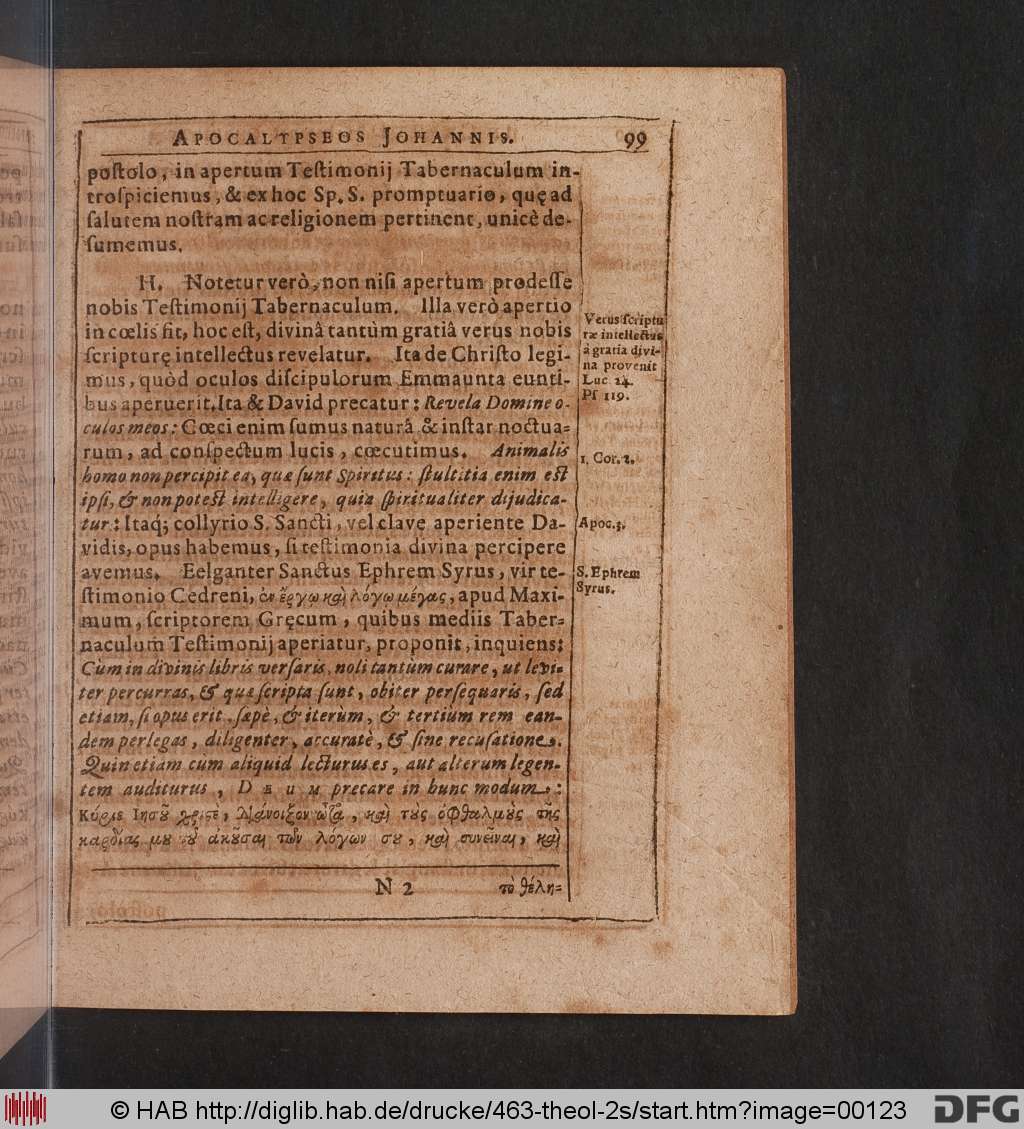 APOCALYPSEOS JOHANNIS. 99
poſtolo, in apertum Teſtimonij Tabernaculum in-
troſpiciemus, & ex hoc Sp. S. promptuario, quę ad
ſalutem noſtram ac religionem pertinent, unicè de-
ſumemus.
H. Notetur verò, non niſi apertum prodeſſe
nobis Teſtimonij Tabernaculum. Illa verò apertio
in cœlis fit, hoc eſt, divinâ tantùm gratiâ verus nobis
ſcripturę intellectus revelatur. Ita de Chriſto legi-
mus, quòd oculos diſcipulorum Emmaunta eunti-
bus aperuerit. Ita & David precatur: Revela Domine o-
culos meos: Cœci enim ſumus naturâ & inſtar noctua-
rum, ad conſpectum lucis, cœcutimus. Animalis
homo non percipit ea, quæ ſunt Spiritus: ſtultitia enim eſt
ipſi, & non poteſt intelligere, quia ſpiritualiter dijudica-
tur: Itaq; collyrio S. Sancti, vel clave aperiente Da-
vidis, opus habemus, ſi teſtimonia divina percipere
avemus. Eelganter Sanctus Ephrem Syrus, vir te-
ſtimonio Cedreni, ἐν ἔργῳ καὶ λόγῳ μέγας, apud Maxi-
mum, ſcriptorem Gręcum, quibus mediis Taber-
naculum Teſtimonij aperiatur, proponit, inquiens:
Cùm in divinis libris verſaris, noli tantùm curare, ut levi-
ter percurras, & quæ ſcripta ſunt, obiter perſequaris, ſed
etiam, ſi opus erit, ſæpè, & iterùm, & tertiùm rem ean-
dem perlegas, diligenter, accuratè, & ſine recuſatione.
Quin etiam cum aliquid lecturus es, aut alterum legen-
tem auditurus, DEUM precare in hunc modum:
Κύριε Ἰησοῦ χριϛὲ, διάνοιξον ὦτα, καὶ τοὺς ὀφθαλμοὺς τῆς
καρδίας μου τοῦ ἀκοῦσαι τῶν λόγων σου, καὶ συνεῖναι, καὶ
N 2 τὸ θέλη-
Verus ſcriptu
ræ intellectus
à gratia divi-
na provenit
Luc 24.
Pſ 119.
1. Cor. 2.
Apoc. 3.
S. Ephrem
Syrus.
© HAB http://diglib.hab.de/drucke/463-theol-2s/start.htm?image=00123
DFG